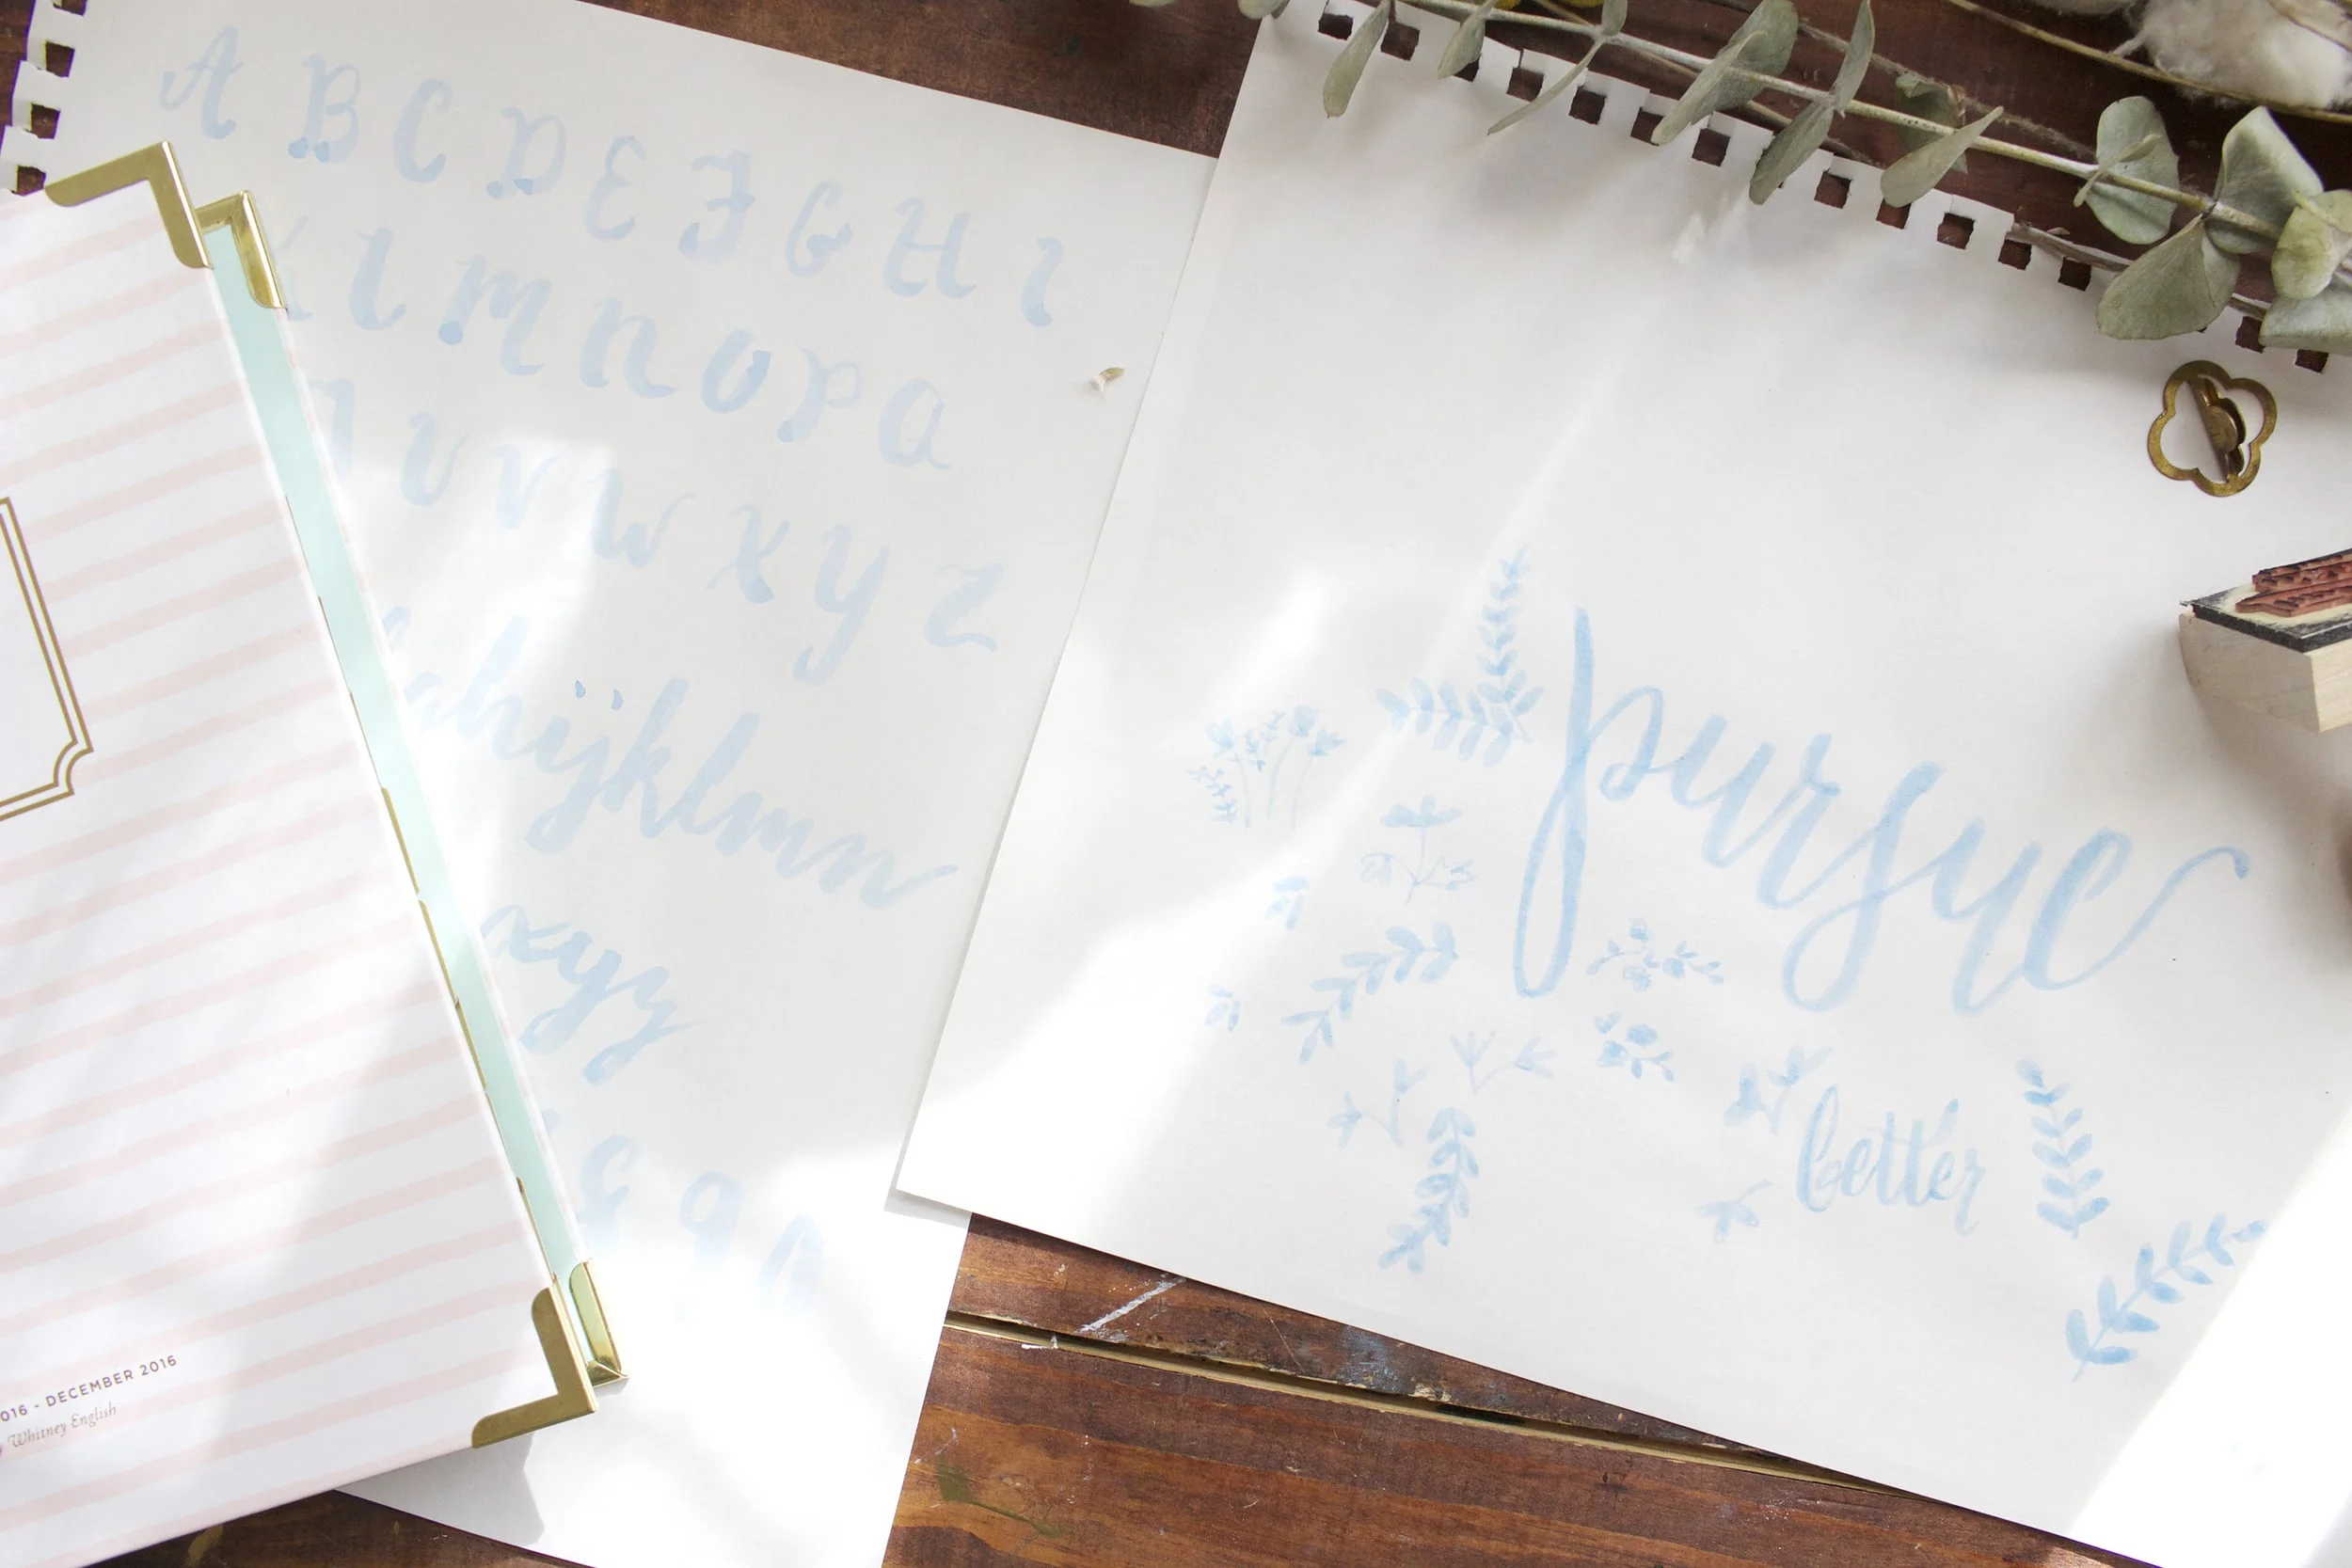 A B C D E F G H I
L M N O P Q
U V W X Y Z
hijklmn
xyz
pursue
better
016 - DECEMBER 2016
Whitney English